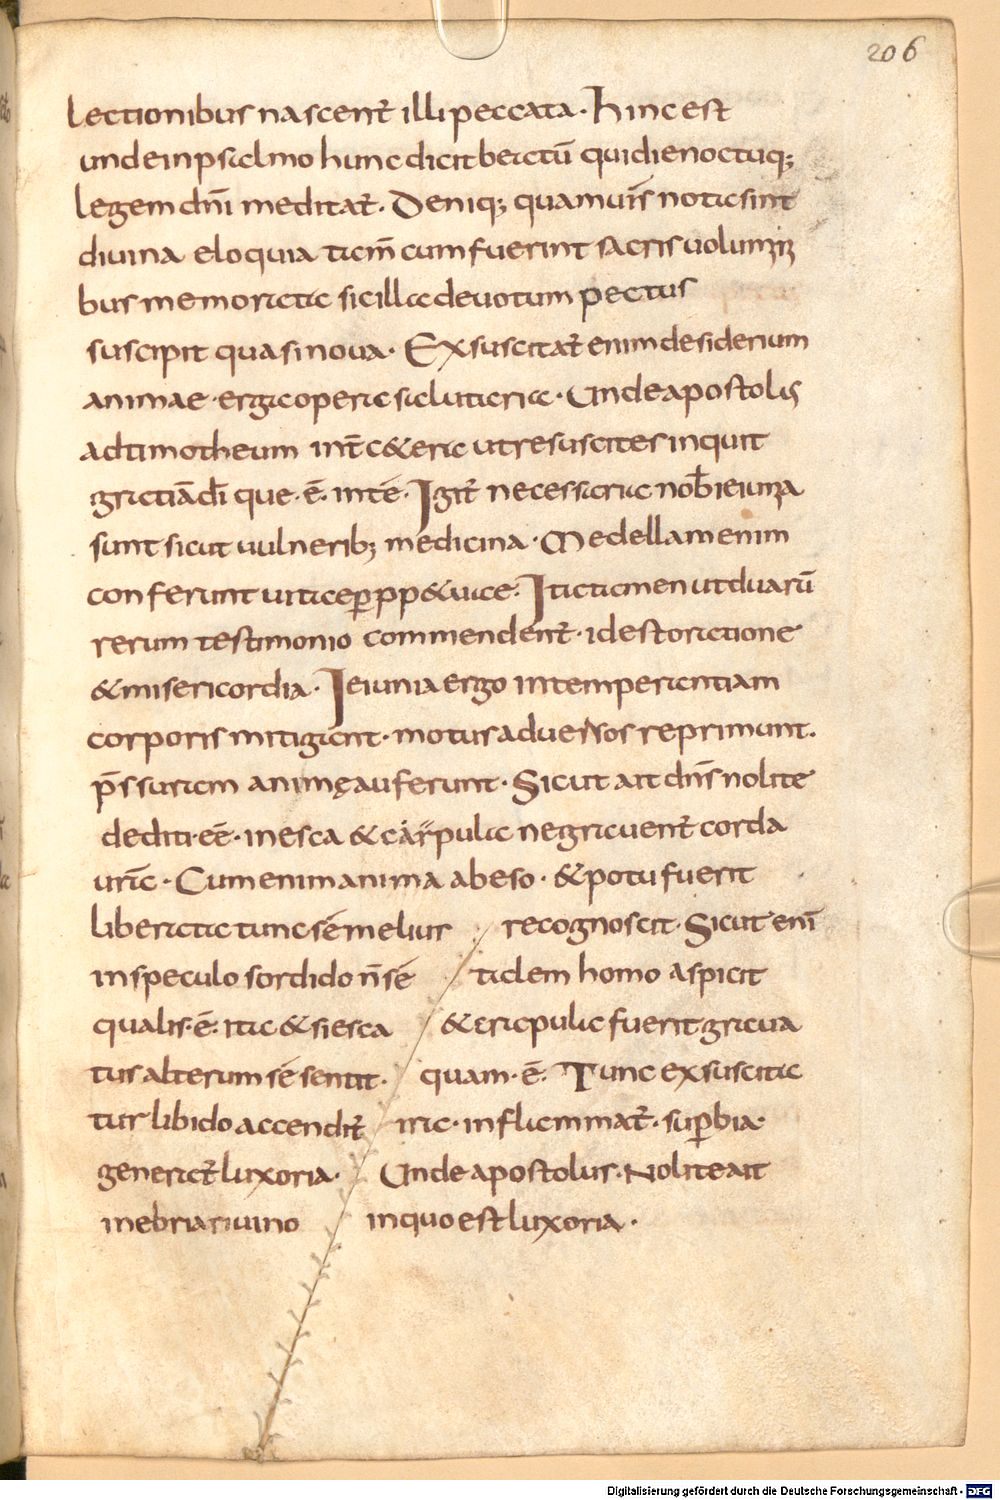 206
lectionibus nascent̄ illi peccata. Hinc est
unde in psalmo hunc dicit beatū qui die noctuq;
legem dn̄i meditat̄. Deniq; quamuis notae sint
divina eloquia tam̄ cum fuerint sacris
bus memorata sic illa devotum pectus
suscipit quasi nova. Exsuscitat̄ enim desiderium
animae erga opera salutaria. Unde apostolus
ad timotheum int̄ c&era ut resuscites inquit
gratiā dī que.ē. in te. Igit̄ necessaria nob̄ ieiunia
sunt sicut vulnerib; medicina. Medellam enim
conferunt
rerum testimonio commendent̄. id est oratione
& misericordia. Ieiunia ergo intemperantiam
corporis mitigant. motus adversos reprimunt.
p̄ssuram animę auferunt. Sicut ait dn̄s nolite
dediti eē. in esca & crapula ne gravent̄ corda
ur̄a. Cum enim anima ab eso. & potu fuerit
liberata tunc sē melius recognoscit. Sicut enī
in speculo sordido n̄ sē talem homo aspicit
qualis.ē. ita & si esca & crapula fuerit grava
tus alterum sē sentit. quam.ē. Tunc exsuscita
tur libido accendit̄ ira. inflammat̄. sup̄bia.
generat̄ luxoria. Unde apostolus. Nolite ait
inebriari vino in quo est luxoria.
Digitalisierung gefördert durch die Deutsche Forschungsgemeinschaft - DFG